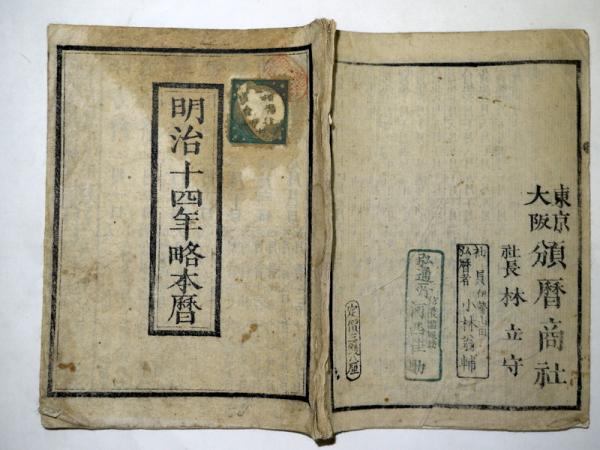 明治十四年略本暦
東京
大阪
頒暦商社
社長 林立守
弘暦者 小林翁輔
定價三銭八厘